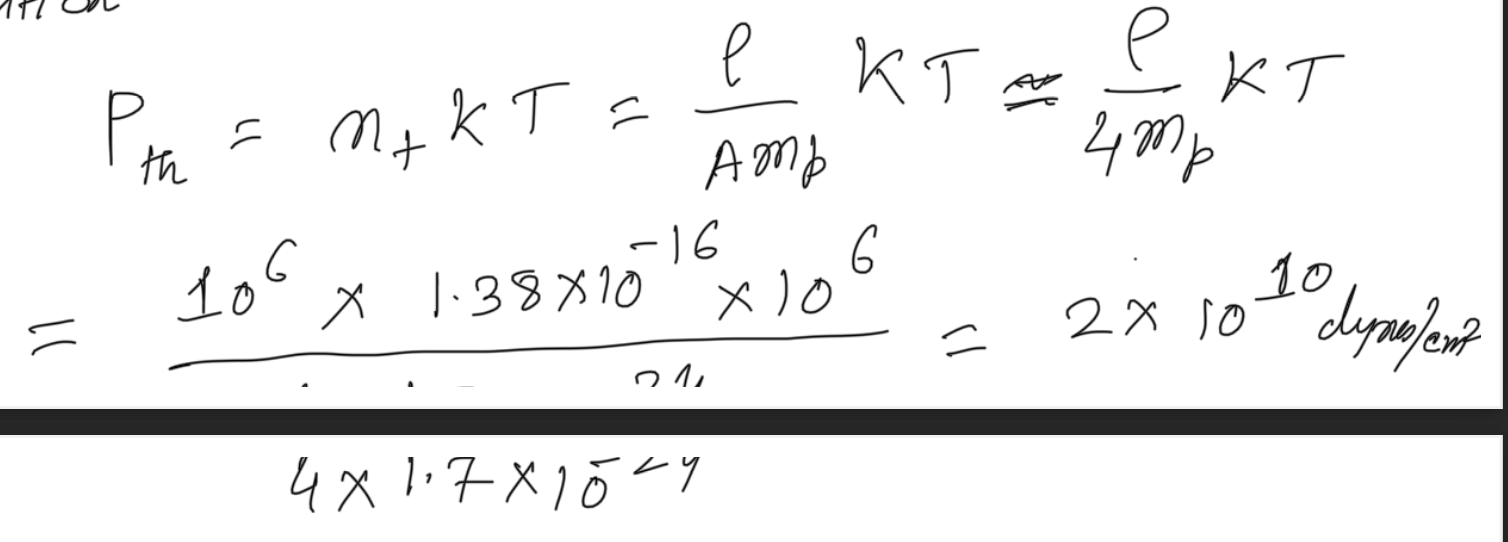 P_th = n_+ kT = ρ/(A m_p) KT ≈ ρ/(4 m_p) KT
= (10^6 × 1.38×10^-16 × 10^6)/(4 × 1.7 × 10^-24) = 2 × 10^10 dynes/cm²